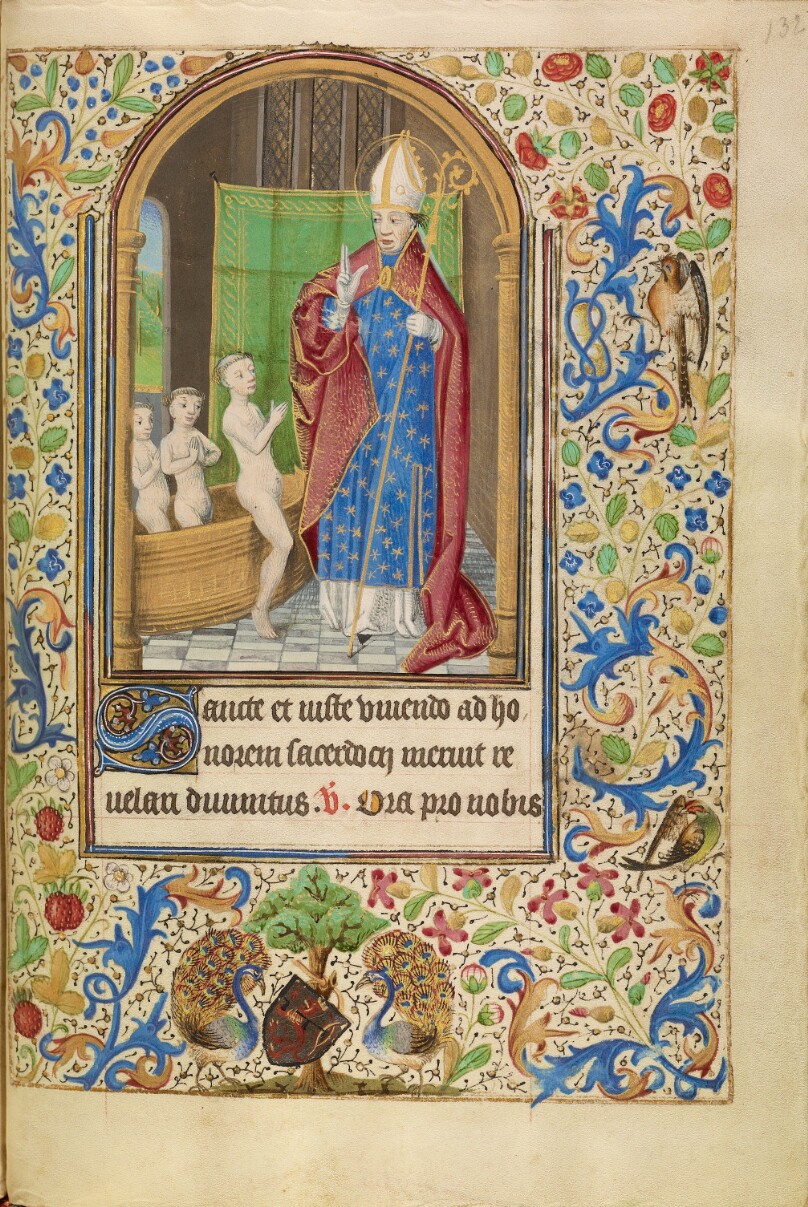 132
Sancte et iuste viuendo ad ho
norem sacerdocij meruit re
uelari diuinitus . V. Ora pro nobis